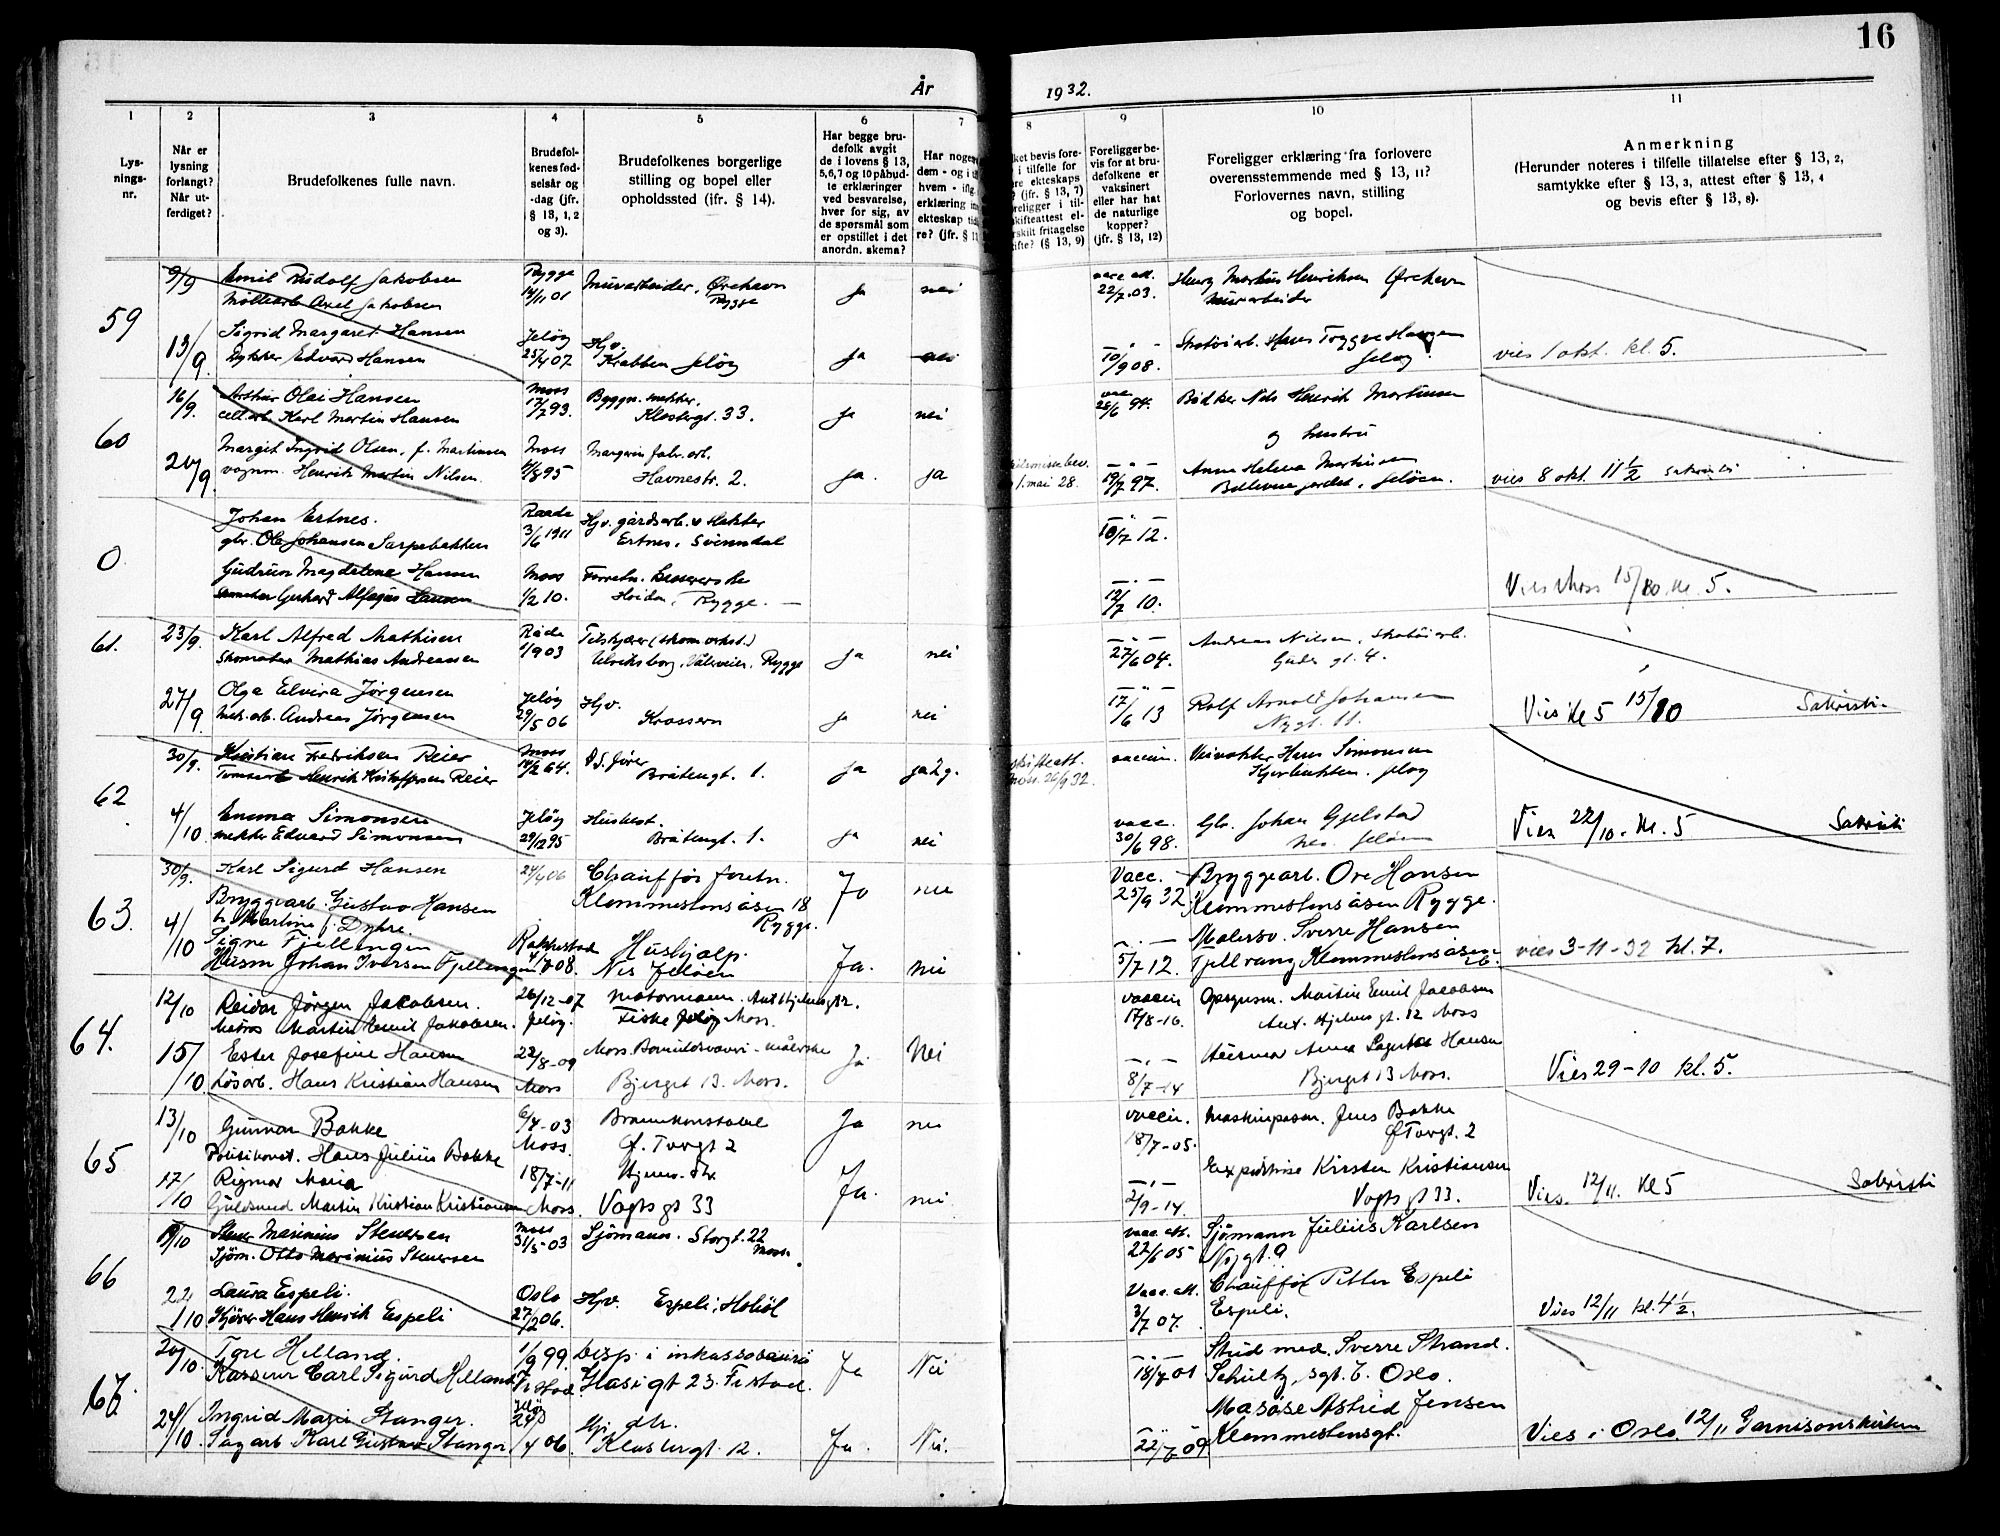 16
År 1932.
1 2 3 4 5 6 7 8 9 10 11
Lys-
nings-
nr.
Når er
lysning
forlangt?
Når ut-
ferdiget?
Brudefolkenes fulle navn.
Brudefol-
kenes fød-
selsår og
-dag (jfr.
§ 13, 1, 2
og 3).
Brudefolkenes borgerlige
stilling og bopel eller
opholdssted (ifr. § 14).
Har begge bru-
defolk avgit
de i lovens § 13,
5,6,7 og 10 påbud-
te erklæringer
ved besvarelse,
hver for sig, av
de spørsmål som
er opstillet i det
anordn. skema?
Har nogen
dem - og i
hvem - ifg.
erklæring
ekteskap tid
re? (jfr. § 1
ket bevis fore-
i tilfelle for
re ekteskaps
? (jfr. § 13, 7)
religger i til-
skifteattest el-
rskilt fritagelse
ifte? (§ 13, 9)
Foreligger be-
vis for at bru-
defolkene er
vaksinert
eller har hat
de naturlige
kopper?
(jfr. § 13, 12)
Foreligger erklæring fra forlovere
overensstemmende med § 13, 11?
Forlovernes navn, stilling
og bopel.
Anmerkning
(Herunder noteres i tilfelle tillatelse efter § 13, 2,
samtykke efter § 13, 3, attest efter § 13, 4
og bevis efter § 13, 8).
59
9/9 Emil Rudolf Jakobsen Rygge Murarbeider, Ørehavn ja nei vacc att. Henry Martius Henriksen Ørehavn
Axel Jakobsen 14/11 01 Rygge 22/7.03. murarbeider
13/9 Sigrid Margaret Hansen Jeløy Hjv. ja nei
Dykker Edvard Hansen 25/4 07 Krabben Jeløy 10/9 08. Jeløy. vies 1 okt. kl. 5.
60
16/9. Arthur Olai Hansen Moss Byggn. snekker, ja nei Bødker Nils Henrik Martinsen
Karl Martin Hansen 17/7 93. Klostergt. 33. 26/6 94. og hustru
20/9 Margit Ingrid Olsen, f. Martinsen Moss Margarin fabr. arb. ja. ja Anna Helena Martinsen
vognm. Henrik Martin Nilsen. 4/8 95 Havnestr. 2. 1. mai 28. 19/7 97. Jeløen. vies 8 okt. 11 1/2 sakristi
0
Johan Ertnes. Raade Hjv. gårdsarb. v Hekter
gbr. Ole Johansen Sarpebakken 3/6 1911 Ertnes, Svinndal 10/7 12.
Gudrun Magdalena Hansen Moss Forretn. bestyrerske
Gerhard Alfogus Hansen 1/2 10. Hoiden, Rygge. 12/7 10. Vies Moss 15/10 kl. 5.
61.
23/9. Karl Alfred Mathisen Råde Tilskjærer (skom. verkst.) ja nei Andreas Nilsen, skotøiarb.
Skomaker Mathias Andreassen 1/9 03 Ulriksborg, Vålerveien, Rygge 27/6 04. Gudes gt. 4.
27/9 Olga Elvira Jørgensen Jeløy Hjv. ja nei 17/6 13 Rolf Arnold Johansen
Andreas Jørgensen 29/5 06 Krossern Nygt. 11. Vies kl 5 15/10 Sakristi.
62
30/9. Kristian Fredriksen Reier Moss ja ja 2 g. vaccin. Hans Simonsen
Henrik Kristoffersen Reier 64. Bråtengt. 1. 26/9 32. Jeløy
4/10 Emma Simonsen Jeløy Husbest. ja nei vacc. Gbr. Johan Gjelstad
snekker Edvard Simonsen 29/12 95 Bråtengt. 1. 30/6 98. Nes. Jeløen Vies 22/10. kl. 5 Sakristi
63.
30/9. Karl Sigurd Hansen 27/4 06 Chauffør foretn. Ja nei Vacc. Bryggearb. Ove Hansen
Bryggearb. Gustav Hansen Klommestensåsen 18 25/9 32 Klommestensåsen Rygge.
h. Martine f. Dyhre. Rygge.
4/10 Signe Fjellengen Rakkestad Hushjelp. Ja. nei Malersv. Sverre Hansen
Husm Johan Iversen Fjellengen 08. Nes Jeløen 5/7 12. Fjellvang Klommestensåsen. vies 3-11-32 kl. 7.
64.
12/10 Reidar Jørgen Jakobsen. 26/12-07 motormann. Ant Hjelmsgt 12. vaccin Martin Emil Jacobsen
Martin Emil Jakobsen. Jeløy. Moss. 17/8-16. Ant. Hjelms gt. 12 Moss
15/10 Ester Josefine Hansen 22/8-09 Moss Bomuldsvæveri Ja. Nei Anna Hansen
Løsarb. Hans Kristian Hansen Moss Bjerget 13. Moss. 8/7-14 Bjerget 13 Moss. Vies 29-10 kl. 5.
65
13/10 Gunnar Bakke 6/4-03 Brannkonstabel Ja nei vaccin. Jens Bakke
Politikonst. Hans Julius Bakke Moss. Ø. Torvgt 2 18/7-05. Ø Torvgt. 2
17/10 Rigmor Maria 18/7-11 Ja. nei Kirsten Kristiansen
Guldsmed Martin Kristian Kristiansen Moss. Vogtsgt 33 2/9-14. Vogtsgt 33. Vies. 12/11. Kl 5 Sakristi
66
Marinius Stenersen Moss Sjømann. Storgt. 22 vacc. att. Sjømann Julius Karlsen
Sjøm. Otto Marinius Stenersen 31/5-03 Moss. 27/6 05 Nygt. 9
22/10 Laura Espeli. Oslo Hjv. Espeli, Hobøl Vacc. att. Chauffør Petter Espeli
Kjører Hans Henrik Espeli 27/2 06. 3/7 07. Espeli. Vies 12/11 kl. 4 1/2.
67.
20/10. Tore Helland. 1/9 99. Desp. i inkassobureau Ja Nei Stud med. Sverre Strand.
Kasserer Carl Sigurd Helland Glasigt 23. Frstad. 18/7 01 Schultz, sgt. 6. Oslo.
24/10. Ingrid Marie Stanger. Jeløy Hj. dtr. Ja. Nei. Masøse Astrid Jensen
Sagarb Karl Gustav Stanger 4 06. Klostergt. 12. 22/7 09 Klommestensgt. Vies i Oslo 12/11 Garnisonskirken